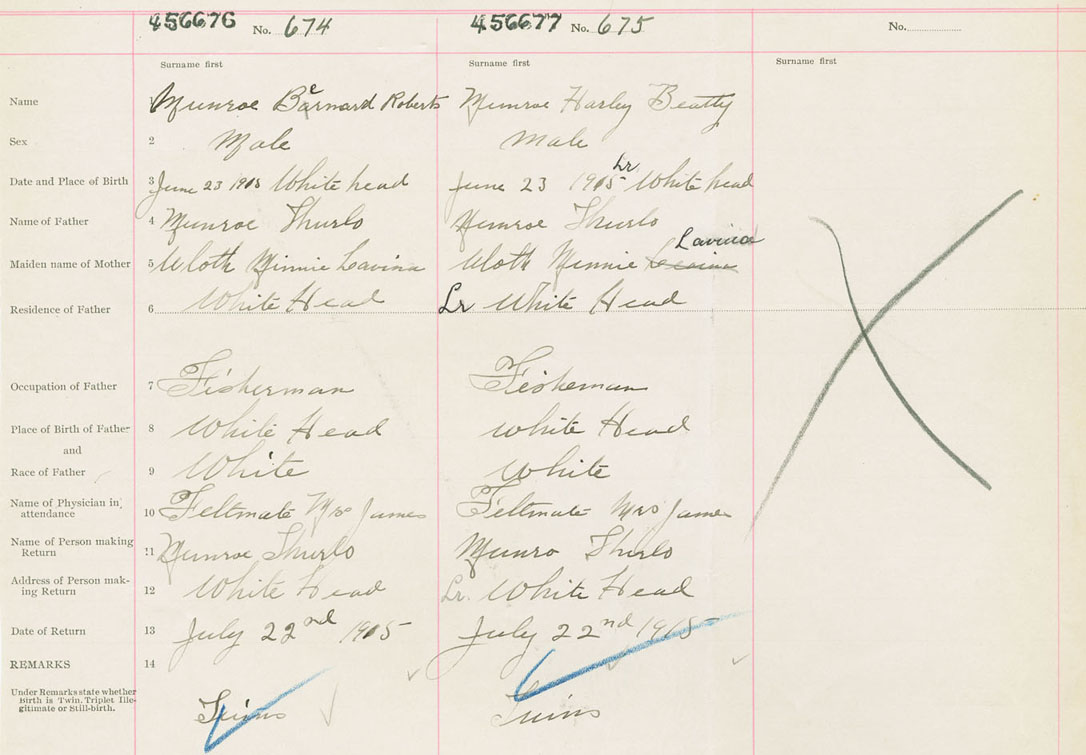 456676 No. 674 456677 No. 675 No.
Surname first Surname first Surname first
Name 1 Munroe Bernard Roberts Munroe Harley Beatty
Sex 2 Male Male
Date and Place of Birth 3 June 23 1915 White head June 23 1915 Lr White head
Name of Father 4 Munroe Thurlo Munroe Thurlo
Lavina
Maiden name of Mother 5 Uloth Minnie Lavina Uloth Minnie
Residence of Father 6 White Head Lr White Head
Occupation of Father 7 Fisherman Fisheman
Place of Birth of Father 8 White Head White Head
and
Race of Father 9 White White
Name of Physician in attendance 10 Feltmate Mrs James Feltmate Mrs James
Name of Person making Return 11 Munroe Thurlo Munro Thurlo
Address of Person mak-ing Return 12 White Head Lr. White Head
Date of Return 13 July 22nd 1915 July 22nd 1915
REMARKS 14
Under Remarks state whether
Birth is Twin, Triplet Ille-
gitimate or Still-birth.
Twins Twins